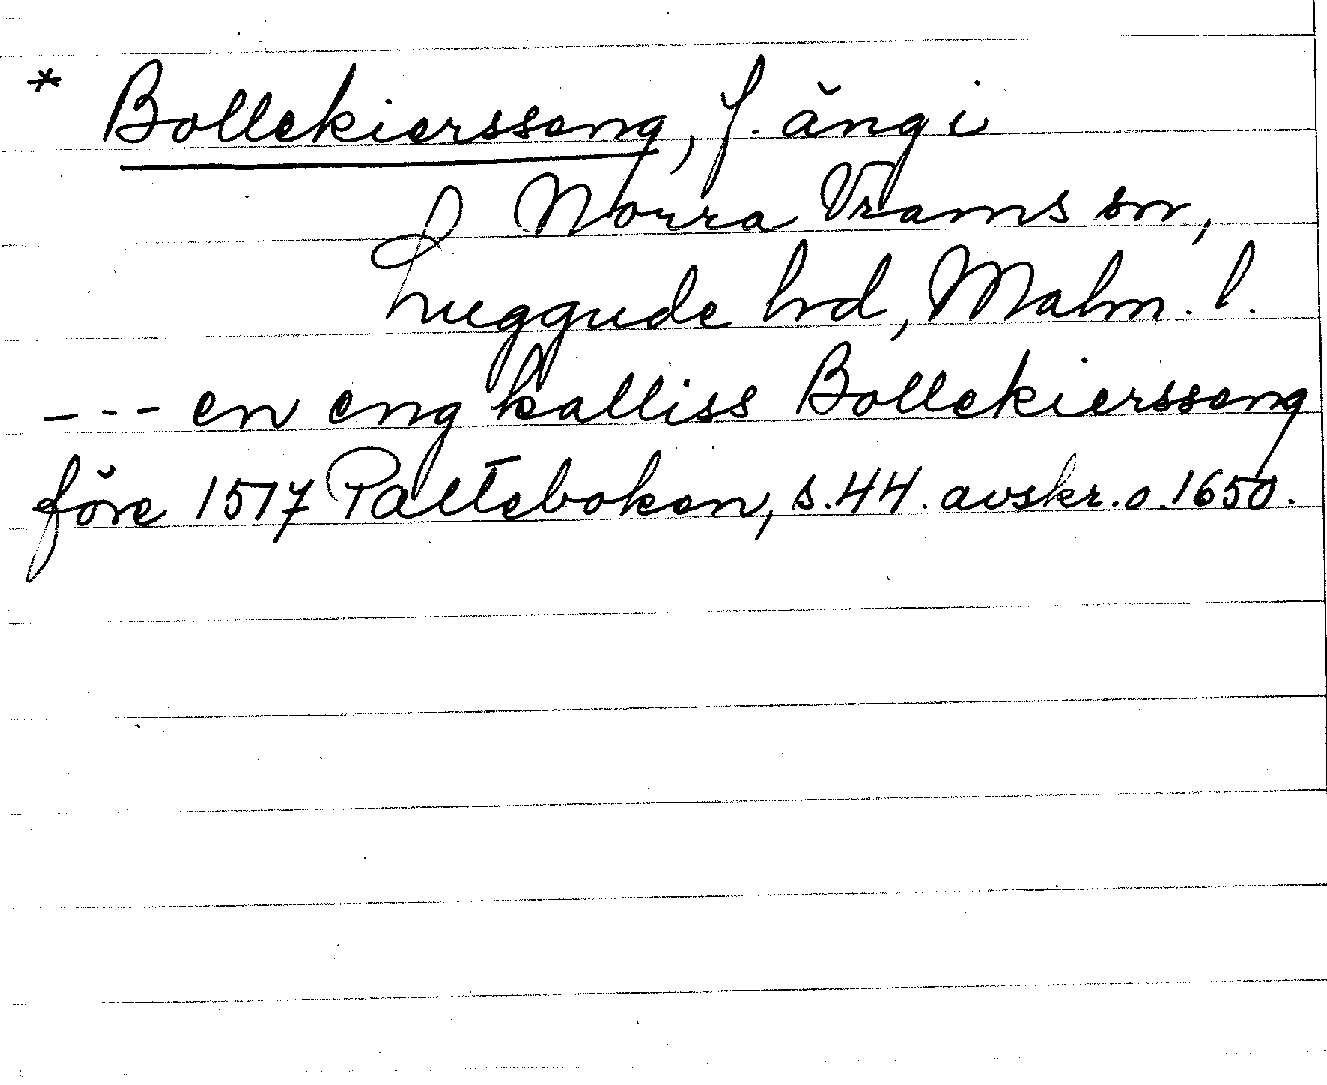 * Bollekiersseng, f. äng i
Norra Vrams sn,
Luggude hd, Malm. l.
--- en eng kalliss Bollekiersseng
före 1517 Palteboken, s.44. avskr.o.1650.